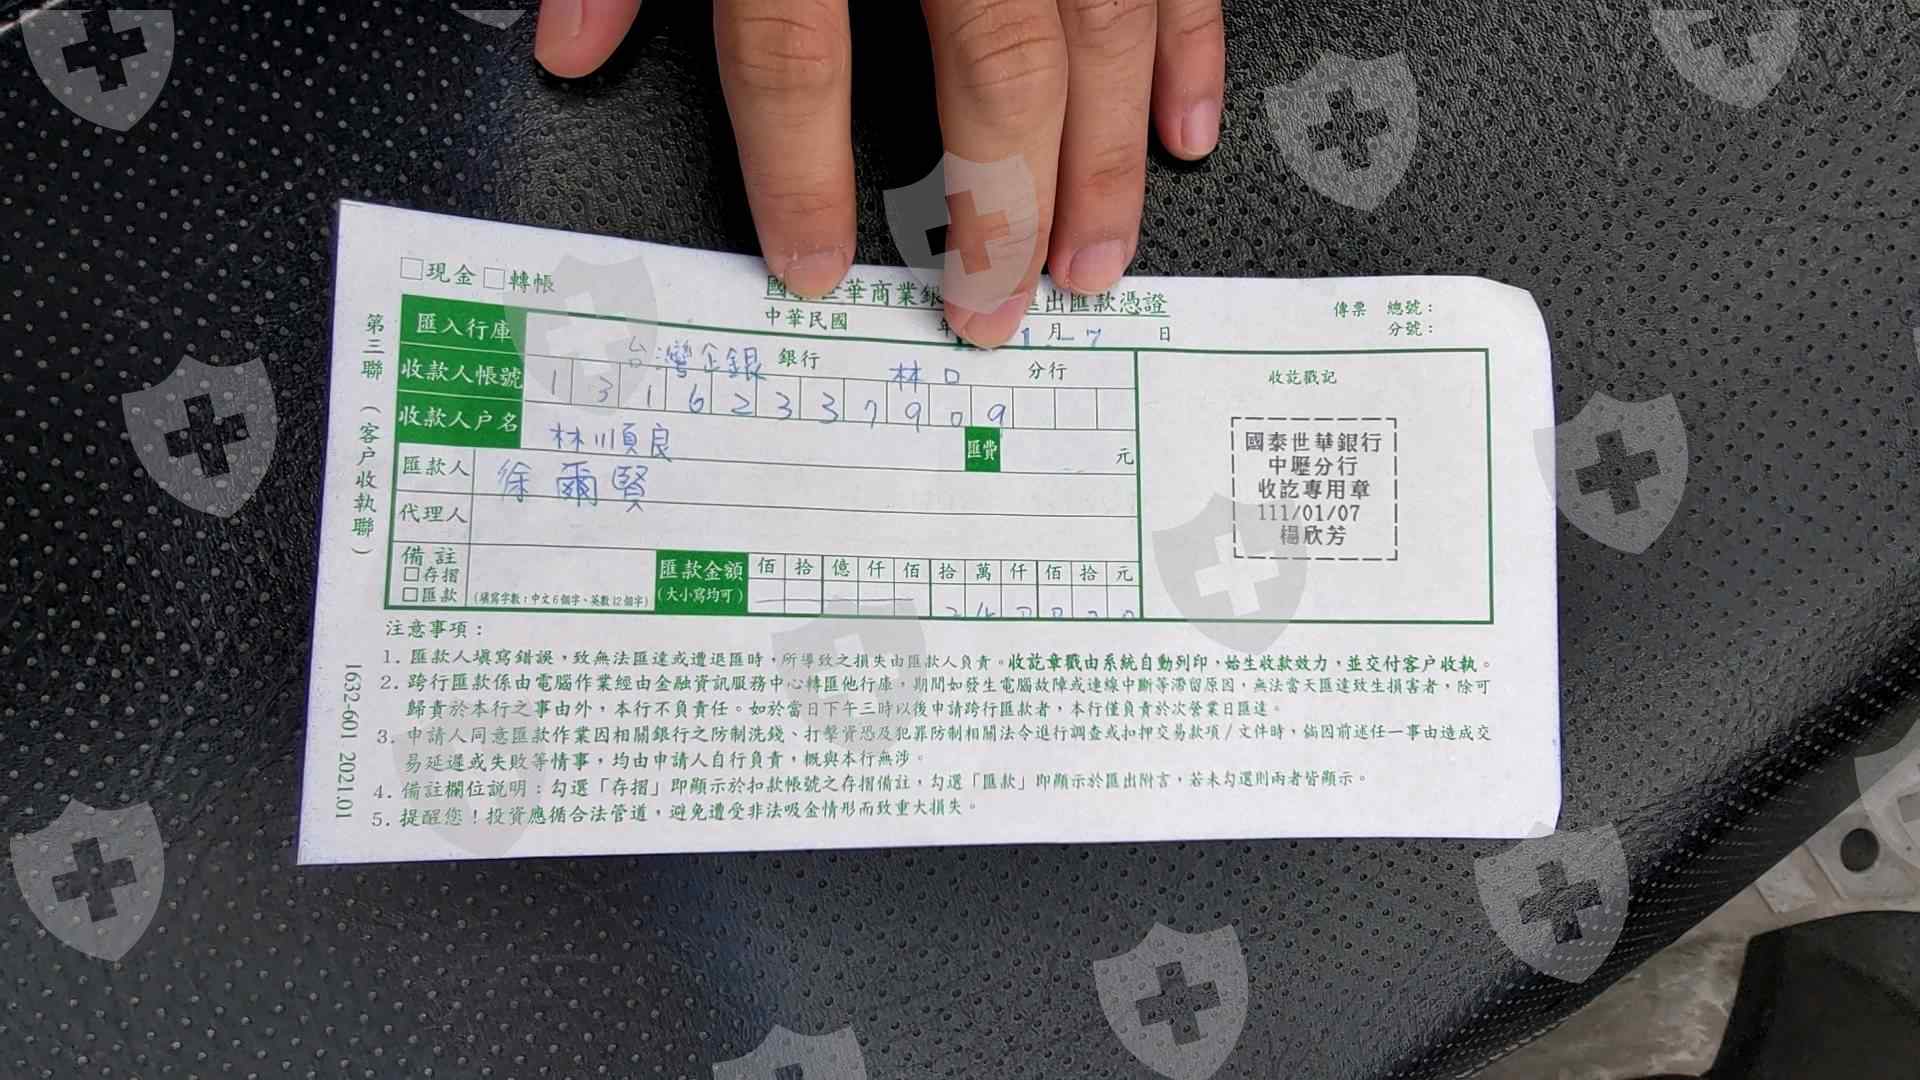 □現金 □轉帳
國泰世華商業銀 匯出匯款憑證
中華民國 年 1 月 7 日
傳票 總號：
分號：
第三聯（客戶收執聯）
匯入行庫 台灣企銀 銀行 林口 分行
收款人帳號 1 3 1 6 2 3 3 7 9 0 9
收款人戶名 林順良
匯費 元
匯款人 徐爾賢
代理人
備註
□存摺
□匯款
(填寫字數：中文6個字、英數12個字)
匯款金額
(大小寫均可)
佰 拾 億 仟 佰 拾 萬 仟 佰 拾 元
收訖戳記
國泰世華銀行
中壢分行
收訖專用章
111/01/07
楊欣芳
注意事項：
1. 匯款人填寫錯誤，致無法匯達或遭退匯時，所導致之損失由匯款人負責。收訖章戳由系統自動列印，始生收款效力，並交付客戶收執。
2. 跨行匯款係由電腦作業經由金融資訊服務中心轉匯他行庫，期間如發生電腦故障或連線中斷等滯留原因，無法當天匯達致生損害者，除可
歸責於本行之事由外，本行不負責任。如於當日下午三時以後申請跨行匯款者，本行僅負責於次營業日匯達。
3. 申請人同意匯款作業因相關銀行之防制洗錢、打擊資恐及犯罪防制相關法令進行調查或扣押交易款項/文件時，倘因前述任一事由造成交
易延遲或失敗等情事，均由申請人自行負責，概與本行無涉。
4. 備註欄位說明：勾選「存摺」即顯示於扣款帳號之存摺備註，勾選「匯款」即顯示於匯出附言，若未勾選則兩者皆顯示。
5. 提醒您！投資應循合法管道，避免遭受非法吸金情形而致重大損失。
1632-601 2021.01